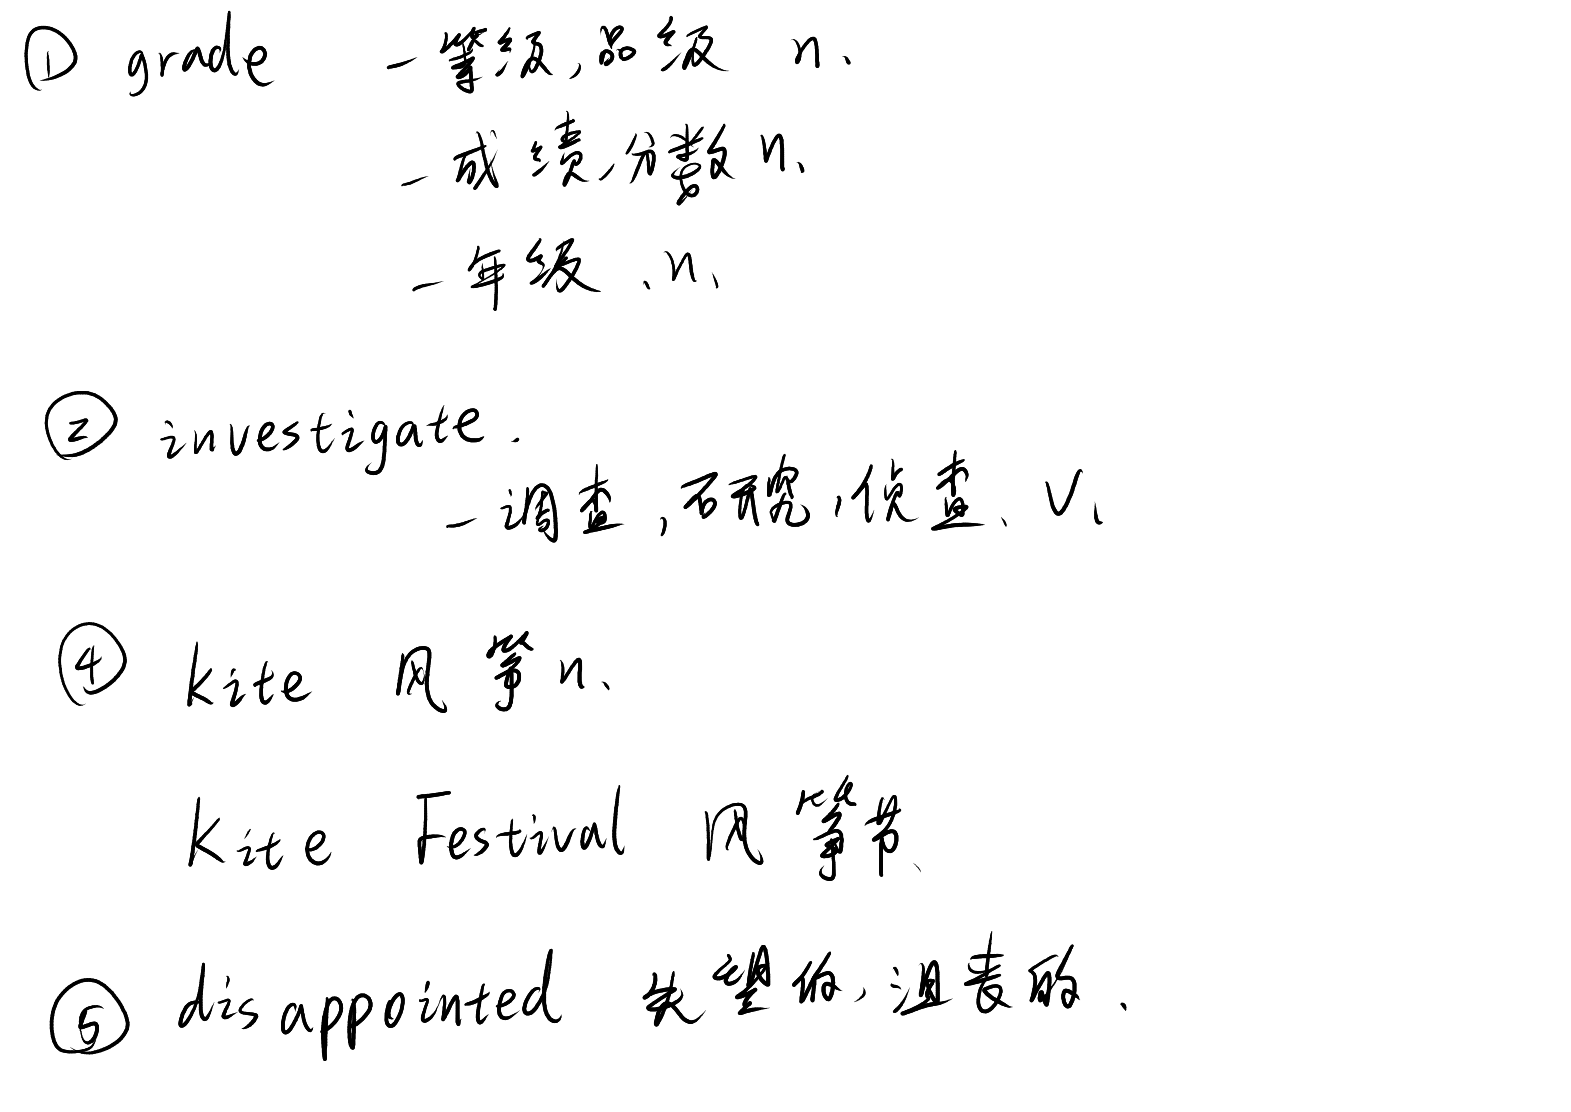 ① grade - 等级,品级 n.
- 成绩,分数 n.
- 年级 . n.
② investigate.
- 调查,研究,侦查. v.
④ kite 风筝 n.
Kite Festival 风筝节.
⑤ disappointed 失望的,沮丧的.